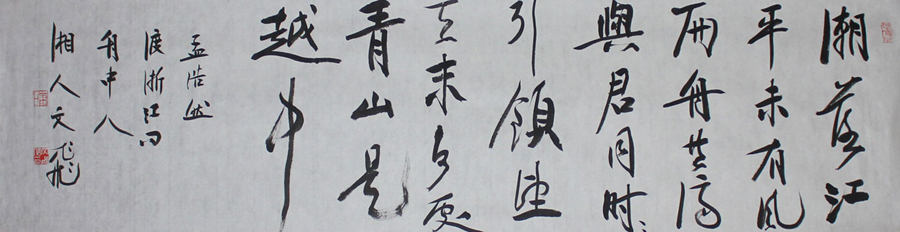 潮落江
平未有风
扁舟共济
與君同时々
引領望
天末何处
青山是
越中
孟浩然
渡浙江问
舟中人
湘人文